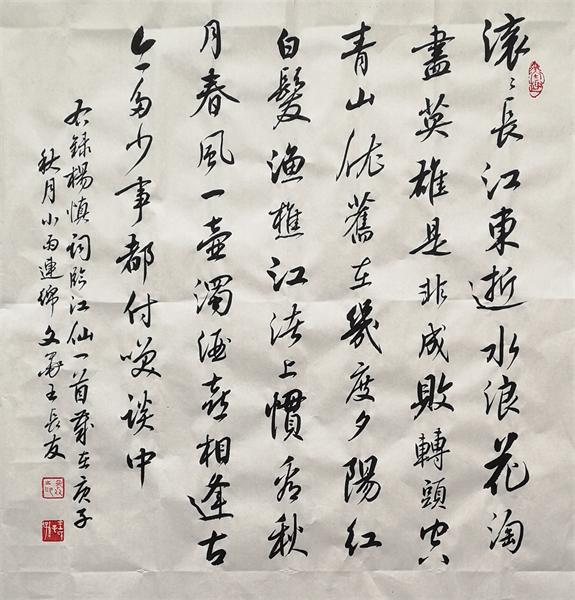 滚〻長江東逝水浪花淘
盡英雄是非成敗轉頭空
青山依舊在幾度夕陽紅
白髮漁樵江渚上慣看秋
月春風一壺濁酒喜相逢古
今多少事都付笑談中
右録楊慎詞臨江仙一首歲在庚子
秋月小雨連綿文王長友